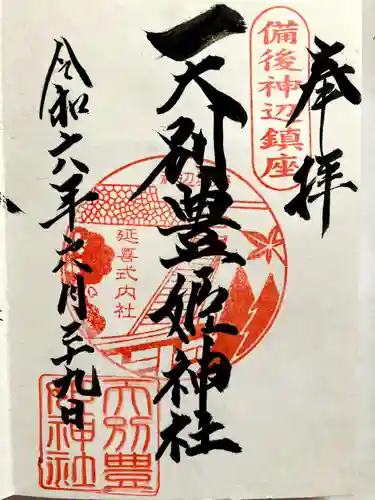 奉拝
備後神辺鎮座
天別豊姫神社
延喜式内社
令和六年六月二九日
天別豊
姫神社